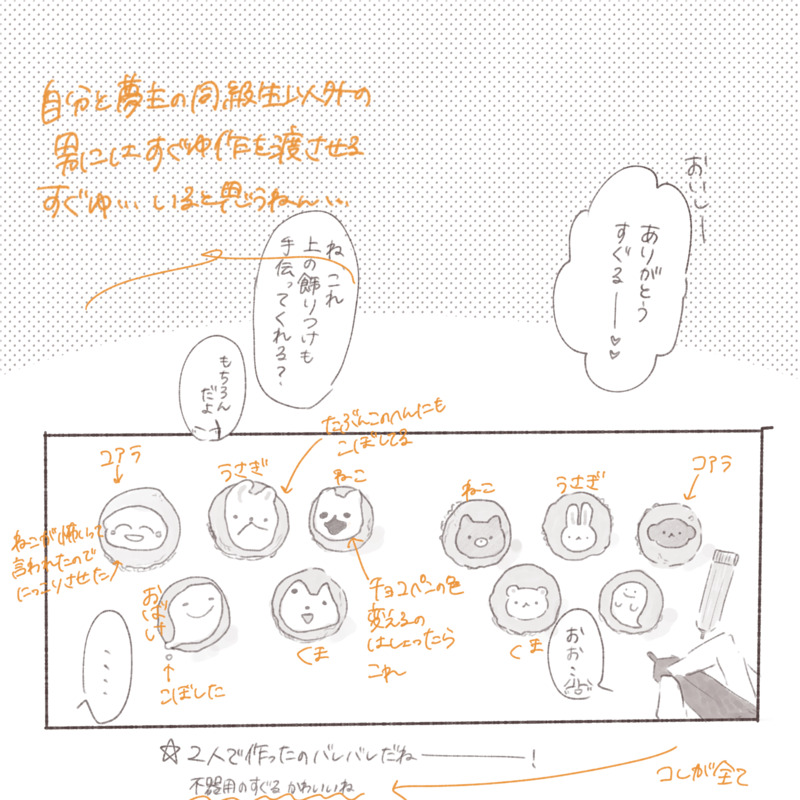 自分と夢主の同級生以外の
男にはすぐゆ作を渡させる
すぐゆ… いると思うねん…
おいしー
ありがとう
すぐる——♡♡
ね これ
上の飾りつけも
手伝ってくれる?
もちろん
だよ
たぶんこのへんにも
こぼしてる
コアラ
うさぎ
ねこ
ねこ
うさぎ
コアラ
ねこが怖いって
言われたので
にっこりさせた
おばけ
こぼした
くま
チョコペンの色
変えるの
はしょったら
これ
くま
おお…
・・・・
☆2人で作ったのバレバレだね———!
不器用のすぐる かわいいね
コレが全て